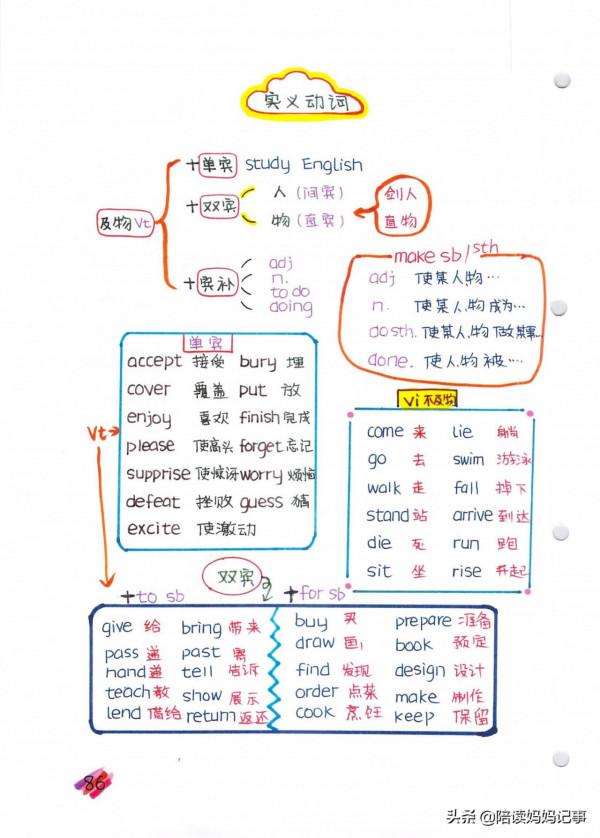 实义动词
及物Vt
+单宾 study English
+双宾
人(间宾)
物(直宾)
剑人
直物
+宾补
adj
n.
to do
doing
make sb/sth
adj 使某人物…
n. 使某人.物成为…
do sth. 使某人.物做某事…
done. 使人.物被….
单宾
Vt
accept 接受 bury 埋
cover 覆盖 put 放
enjoy 喜欢 finish 完成
please 使高兴 forget 忘记
supprise 使惊讶 worry 烦恼
defeat 挫败 guess 猜
excite 使激动
Vi 不及物
come 来 lie 躺
go 去 swim 游泳
walk 走 fall 掉下
stand 站 arrive 到达
die 死 run 跑
sit 坐 rise 升起
双宾
+to sb
give 给 bring 带来
pass 递 past
hand 递 tell 告诉
teach 教 show 展示
lend 借给 return 返还
+for sb
buy 买 prepare 准备
draw 画 book 预定
find 发现 design 设计
order 点菜 make 制作
cook 烹饪 keep 保留
86
头条 @陪读妈妈记事